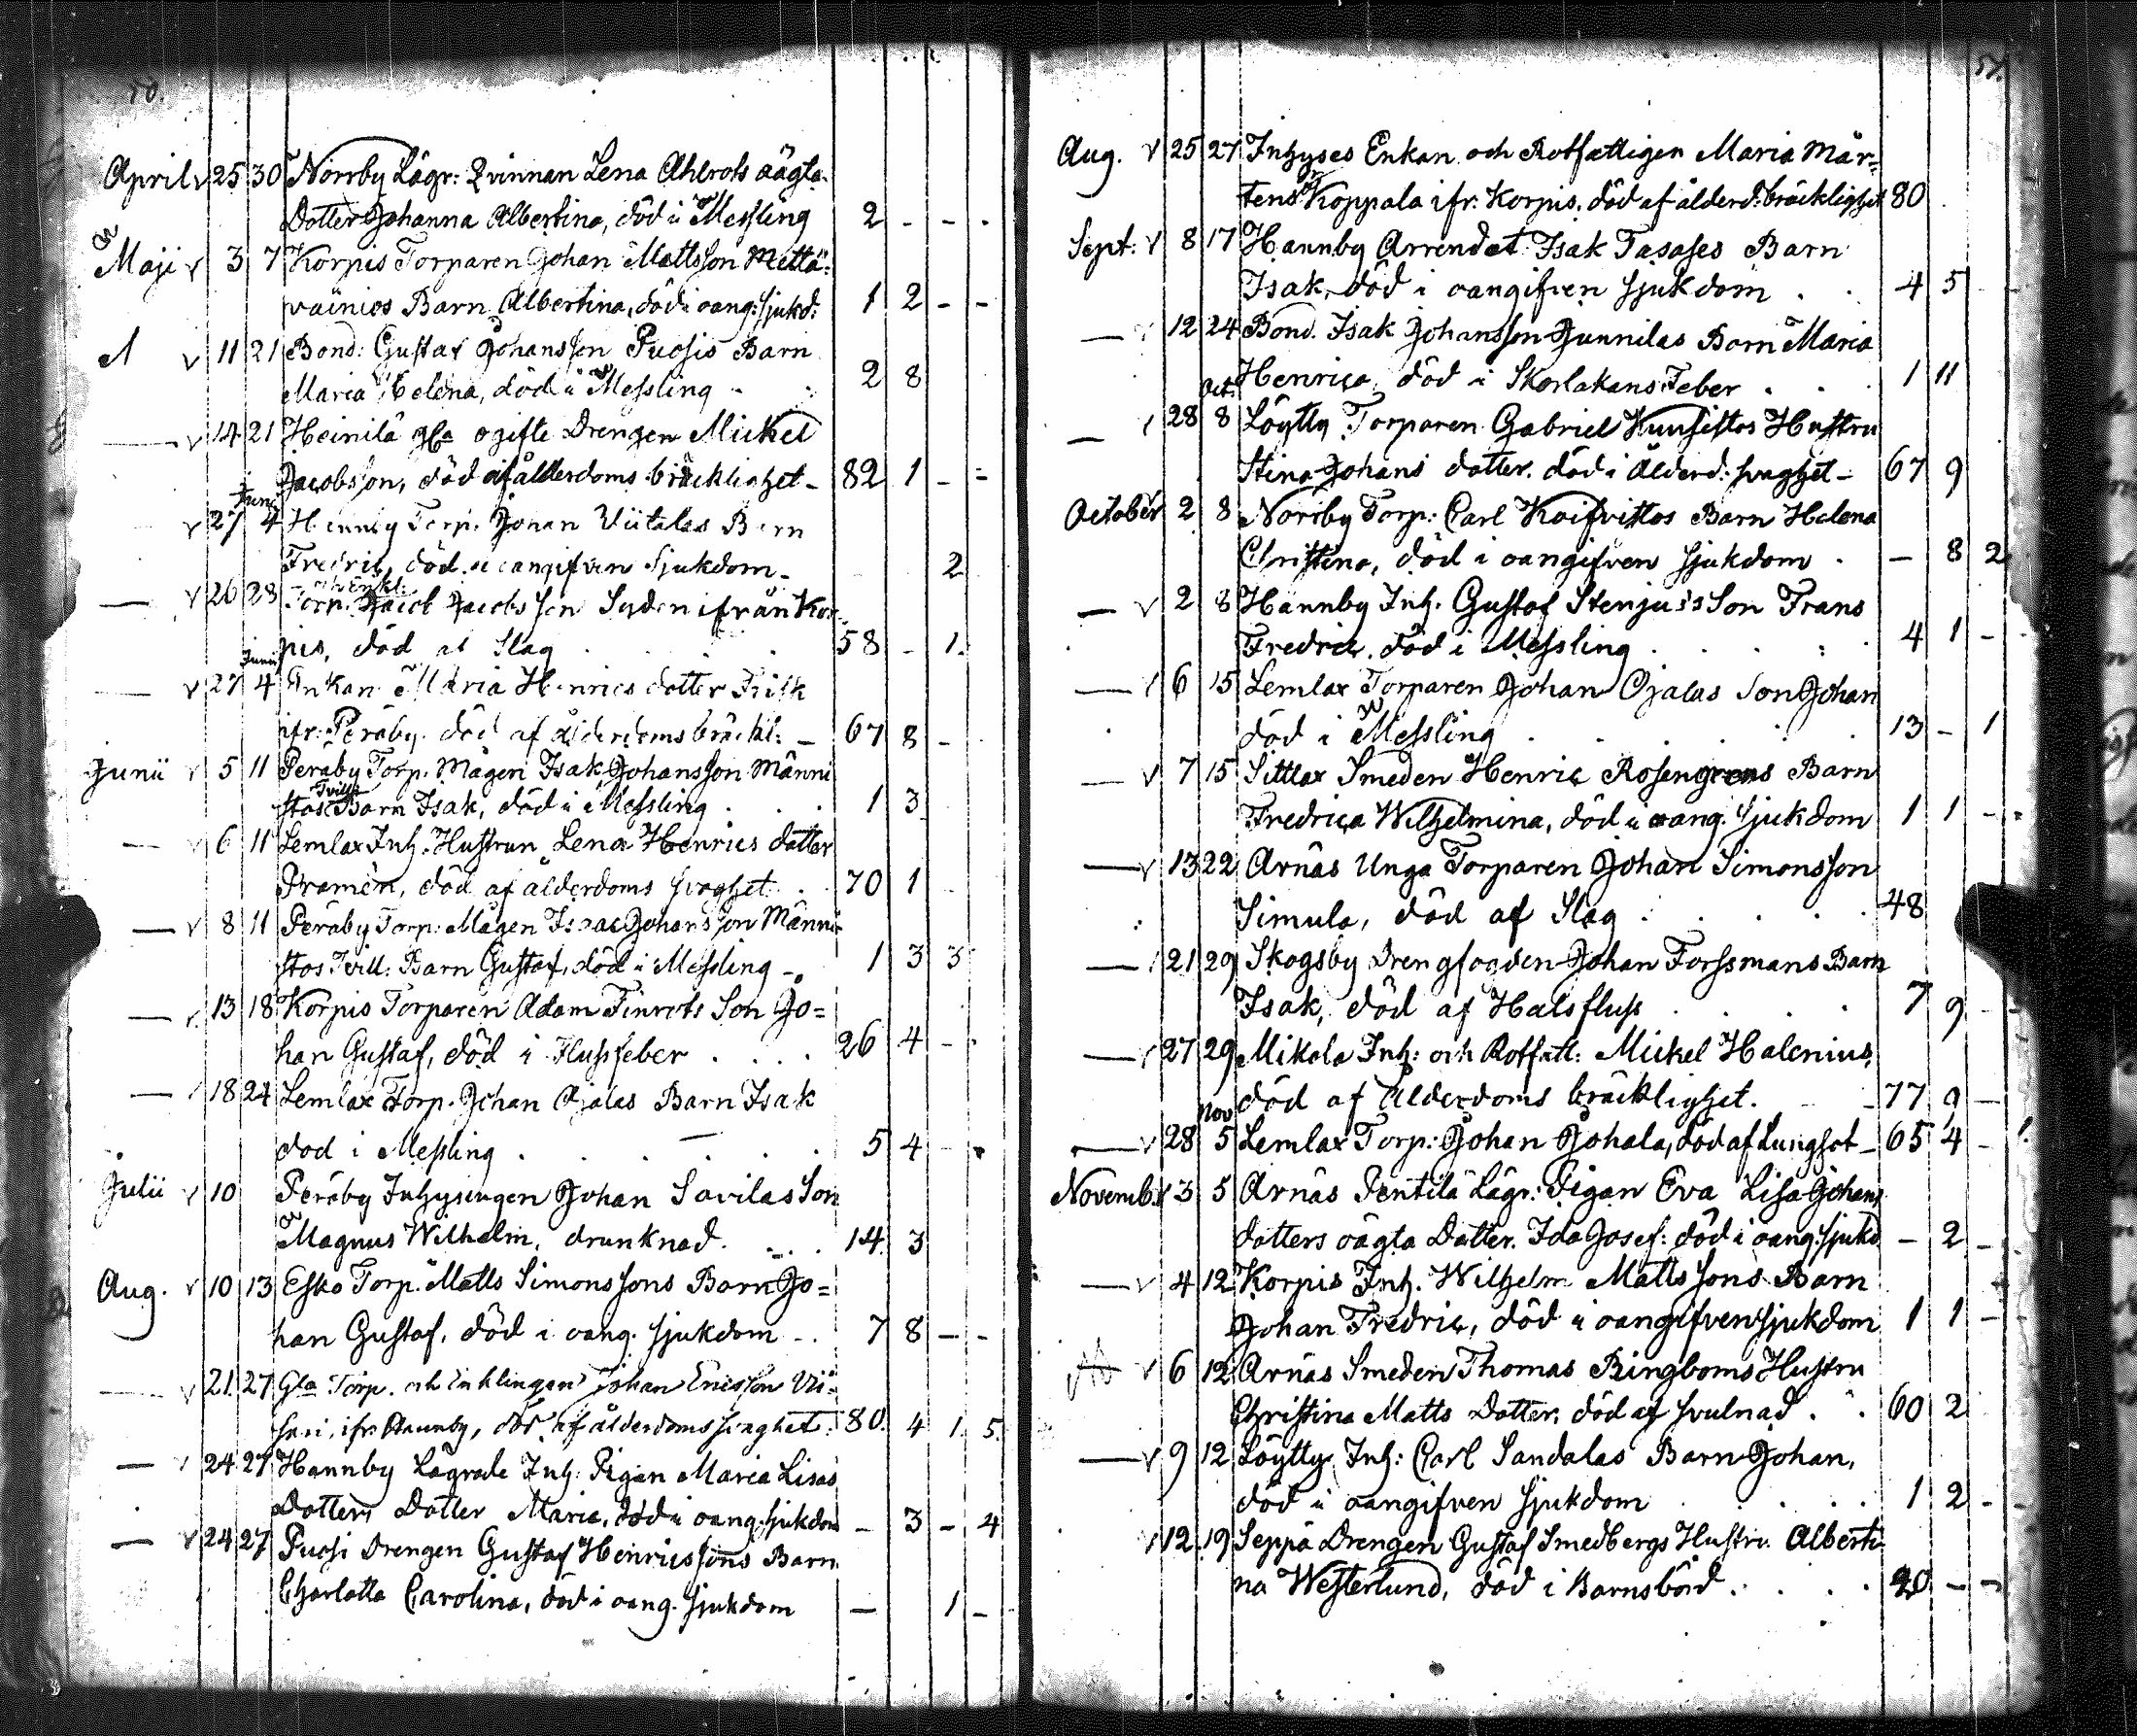 50.
April v 25 30 Norrby Lägr: Qvinnan Lena Ahlrots oägta
Dotter Johanna Albertina, död i Messling 2 - - -
Maji v 3 7 Korpis Torparen Johan Mattsson Mettä-
vainios Barn Albertina, död i oang: sjukd: 1 2 - -
v 11 21 Bond: Gustaf Johansson Puosis Barn
Maria Helena, död i Messling - 2 8
— v 14 21 Heinilä gla ogifte Drengen Mickel
Jacobsson, död af ålderdoms bräcklighet - 82 1 - -
Juni
v 27 4 Hennby Torp. Johan Viitalas Barn
Fredric, död i oangifven sjukdom - 2
— v 26 28 Torp. och Enkl: Jacob Jacobsson Syden ifrån Kor-
pis, död af Slag 58 - 1.
Junii
— v 27 4 Enkan Maria Henrics dotter Frisk
ifr: Peräby. död af ålderdomsbräckl: - 67 8 -
Junii v 5 11 Peräby Torp. Mågen Isak Johansson Männi
stos Tvill: Barn Isak, död i Messling . . . 1 3
— v 6 11 Lemlax Inh. Hustrun Lena Henrics dotter
Pramén, död af ålderdoms svaghet . 70 1 -
— v 8 11 Peräby Torp: Mågen Isaac Johansson Männi-
stos Tvill: Barn Gustaf, död i Messling - 1 3 3
— v. 13 18 Korpis Torparen Adam Finrots Son Jo=
han Gustaf, död i Flussfeber . . . . 26 4 - .
— v 18 24 Lemlax Torp. Johan Ojalas Barn Isak
död i Messling . . . . . 5 4 - .
Julii v 10 Peräby Inhysingen Johan Savilas Son
Magnus Wilhelm, drunknad. . . . 14 3
Aug. v 10 13 Esko Torp. Matts Simonssons Barn Jo=
han Gustaf, död i oang. sjukdom - . 7 8 - -
— v 21. 27 Gla Torp. och Enklingen Johan Ericsson Vii-
sari, ifr: Hannby, död af ålderdoms svaghet. 80. 4 1 5.
— v 24 27 Hannby Lägrade Inh: Pigan Maria Lisas
Dotters Dotter Maria, död i oang. sjukdom - 3 - 4
— v 24 27 Puosi Drengen Gustaf Henricssons Barn
Charlotta Carolina, död i oang. sjukdom — 1 -
51.
Aug. v 25 27 Inhyses Enkan och Rotfattigen Maria Mår=
tens dr Koppala ifr: Korpis, död af ålderd: bräcklighet 80
Sept: v 8 17 Hannby Arrendat: Isak Tasases Barn
Isak, död i oangifven sjukdom . . 4 5 - -
— v 12 24 Bond. Isak Johansson Junnilas Barn Maria
Henrica, död i Skarlakans Feber . . . 1 11
Oct:
— v 28 8 Löytty Torparen Gabriel Kuusistos Hustru
Stina Johans dotter. död i Ålderd: svaghet - 67 9
October 2 8 Norrby Torp: Carl Koifvistos Barn Helena
Christina, död i oangifven sjukdom . - 8 2
— v 2 8 Hannby Inh. Gustaf Stenjus's Son Frans
Fredric. död i Messling . . . . : . 4 1 -
— v 6 15 Lemlax Torparen Johan Ojalas Son Johan
död i Messling . . . . . . 13 - 1
— v 7 15 Sittlax Smeden Henric Rosengrens Barn
Fredrica Wilhelmina, död i oang. sjukdom 1 1 - -
— v 13 22 Arnäs Unga Torparen Johan Simonsson
Simula, död af Slag . . . . . 48
— v 21 29 Skogsby Drengfogden Johan Forssmans Barn
Isak, död af Halsfluss . . . . 7 9 -
— v 27 29 Mikola Inh: och Rotfatt: Mickel Halenius,
död af Ålderdoms bräcklighet. - - 77 9 -
Nov
— v 28 5 Lemlax Torp: Johan Johala, död af Lungsot - 65 4 -
Novemb: v 3 5 Arnäs Pentilä Lägr: Pigan Eva Lisa Johans
dotters oägta Dotter Ida Josef: död i oang: sjukd - 2 -
— v 4 12 Korpis Inh. Wilhelm Mattssons Barn
Johan Fredric, död i oangifven sjukdom 1 1 -
v 6 12 Arnäs Smeden Thomas Ringboms Hustru
Christina Matts Dotter, död af svulnad . . 60 2
— v 9 12 Löytty Inh: Carl Sandalas Barn Johan,
död i oangifven sjukdom . . . . 1 2 -
v 12 19 Seppä Drengen Gustaf Smedbergs Hustru Alberti
na Westerlund, död i Barnsbörd . . . . 20 - -